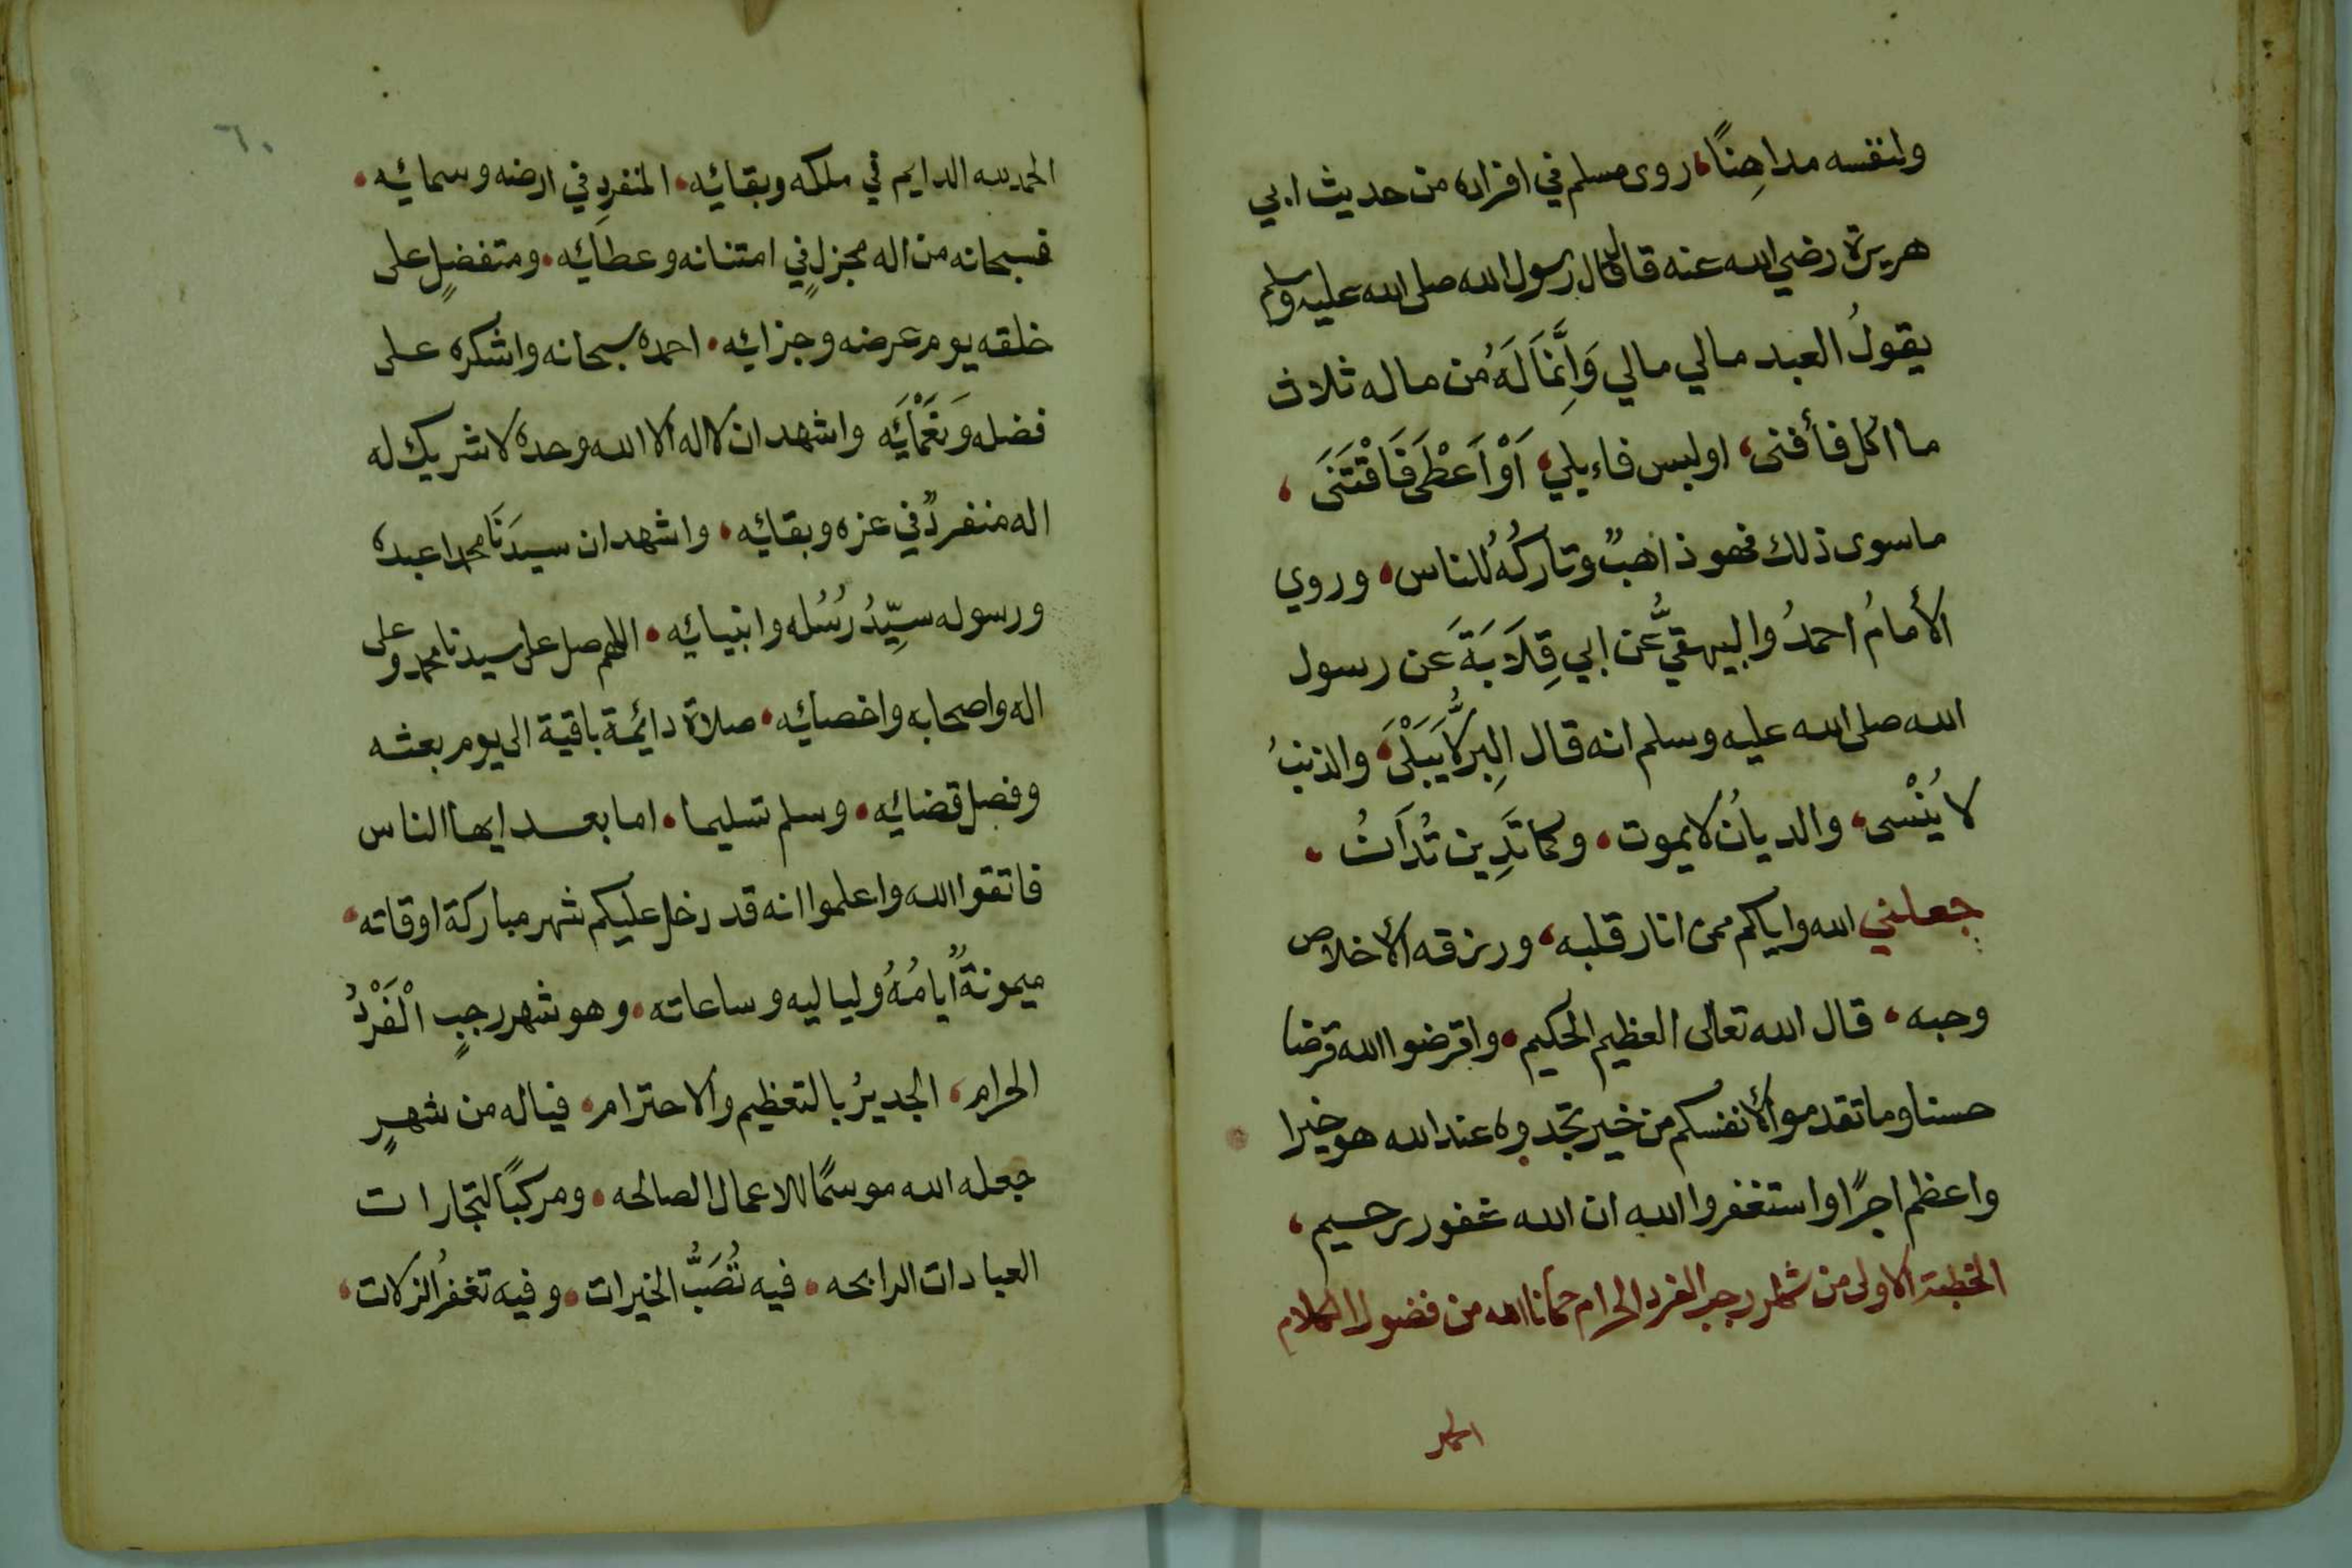 ولنفسه مداهِنًا، روى مسلم في افراده من حديث ابي
هريرة رضي الله عنه قال قال رسول الله صلى الله عليه وسلم
يقولُ العبد مالي مالي وَاِنَّمَا لَهُ من ماله ثلاث
ما اكل فأفنى، اولبس فاءبلي، اَوْ اَعْطَى فَاقْتَنَى،
ماسوى ذلك فهو ذاهبٌ وتاركُهُ للناس، وروي
الأمامُ احمدُ والبيهقيُّ عن ابي قِلَابَةَ عَن رسول
الله صلى الله عليه وسلم انه قال البِرُّ لا يَبْلَىَ، والذنبُ
لا يُنْسى، والديانُ لا يموت، وكما تَدِين تُدَانُ،
جعلني الله واياكم ممن انار قلبه، ورزقه الأخلاص
وحبه، قال الله تعالى العظيم الحكيم، واقرضوا الله قرضا
حسنا وما تقدموا لأنفسكم من خير تجدوه عند الله هو خيرا
واعظم اجرًا واستغفروا الله ان الله غفور رحيم،
الخطبة الاولى من شهر رجب الفرد الحرام حمانا الله من فضول الكلام
الحمد
٦٠
الحمد لله الدايم في ملكه وبقائِه، المنفردِ في ارضه وسمائِه،
فسبحانه من اله مجزلٍ في امتنانه وعطائِه، ومتفضلٍ على
خلقه يوم عرضه وجزائِه، احمده سبحانه واشكره على
فضله وَنَعْمَائِه واشهد ان لا اله الا الله وحده لا شريك له
اله منفردٌ في عزه وبقائِه، واشهد ان سيدَنَا محمدا عبده
ورسوله سيِّدُ رُسُله وانبيائِه، اللهم صل على سيدنا محمد وعلى
اله واصحابه واخصائِه، صلاة دائمة باقية الى يوم بعثه
وفصل قضائِه، وسلم تسليما، اما بعد ايها الناس
فاتقوا الله واعلموا انه قد دخل عليكم شهر مباركة اوقاته،
ميمونةٌ ايامُهُ ولياليه وساعاته، وهو شهر رجبٍ الْفَرْدُ
الحرام، الجديرُ بالتعظيم والاحترام، فياله من شهرٍ
جعله الله موسمًا للاعمال الصالحه، ومركبًا لتجارات
العبادات الرابحه، فيه تُصَبُّ الخيرات، وفيه تغفرُ الزلات،